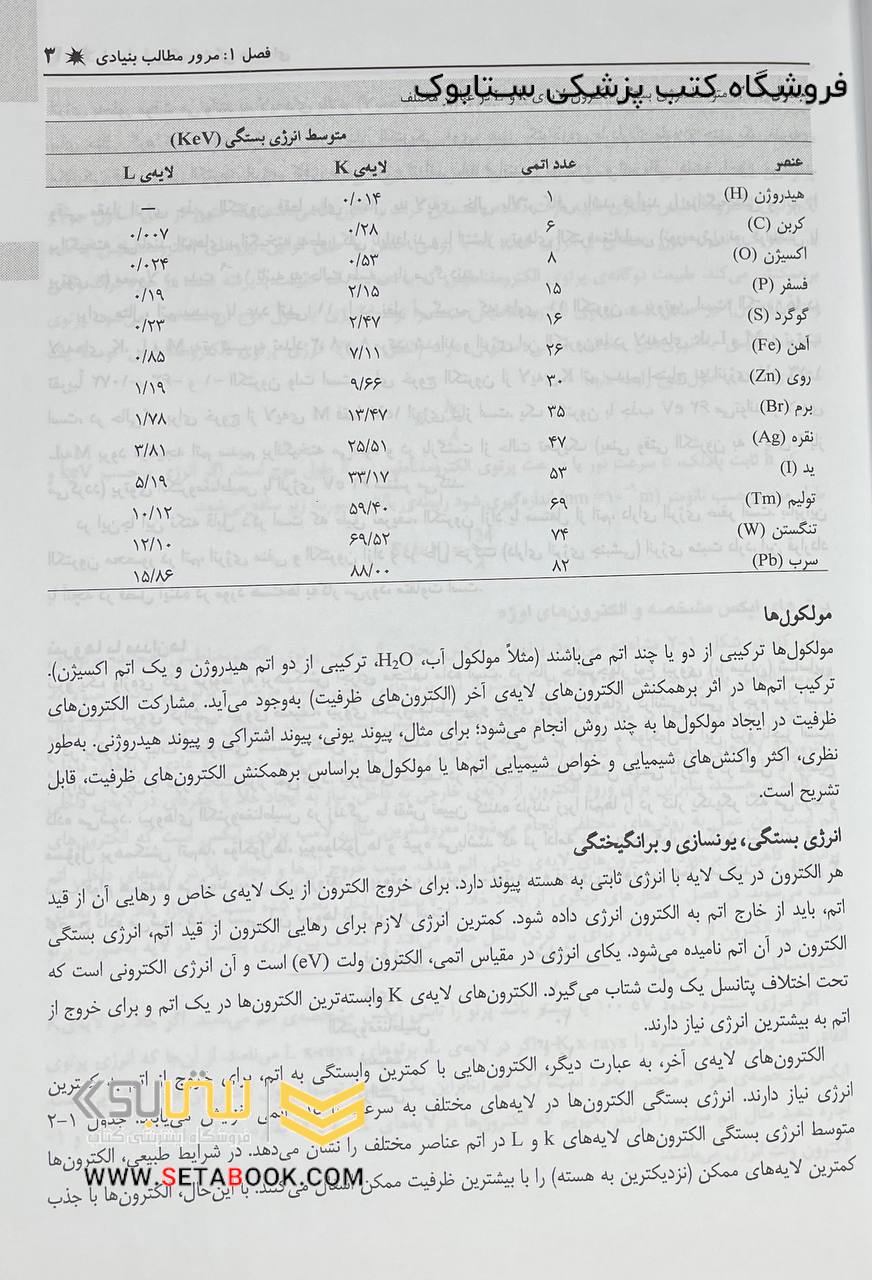 فصل ۱: مرور مطالب بنیادی ۳
فروشگاه کتب پزشکی ستابوک
متوسط انرژی بستگی (KeV)
عنصر عدد اتمی لایه‌ی K لایه‌ی L
هیدروژن (H) ۱ ۰/۰۱۴ —
کربن (C) ۶ ۰/۲۸ ۰/۰۰۷
اکسیژن (O) ۸ ۰/۵۳ ۰/۰۲۴
فسفر (P) ۱۵ ۲/۱۵ ۰/۱۹
گوگرد (S) ۱۶ ۲/۴۷ ۰/۲۳
آهن (Fe) ۲۶ ۷/۱۱ ۰/۸۵
روی (Zn) ۳۰ ۹/۶۶ ۱/۱۹
برم (Br) ۳۵ ۱۳/۴۷ ۱/۷۸
نقره (Ag) ۴۷ ۲۵/۵۱ ۳/۸۱
ید (I) ۵۳ ۳۳/۱۷ ۵/۱۹
تولیم (Tm) ۶۹ ۵۹/۴۰ ۱۰/۱۲
تنگستن (W) ۷۴ ۶۹/۵۲ ۱۲/۱۰
سرب (Pb) ۸۲ ۸۸/۰۰ ۱۵/۸۶
مولکول‌ها
مولکول‌ها ترکیبی از دو یا چند اتم می‌باشند (مثلاً مولکول آب، H₂O، ترکیبی از دو اتم هیدروژن و یک اتم اکسیژن).
ترکیب اتم‌ها در اثر برهمکنش الکترون‌های لایه‌ی آخر (الکترون‌های ظرفیت) به‌وجود می‌آید. مشارکت الکترون‌های
ظرفیت در ایجاد مولکول‌ها به چند روش انجام می‌شود؛ برای مثال، پیوند یونی، پیوند اشتراکی و پیوند هیدروژنی. به‌طور
نظری، اکثر واکنش‌های شیمیایی و خواص شیمیایی اتم‌ها یا مولکول‌ها براساس برهمکنش الکترون‌های ظرفیت، قابل
تشریح است.
انرژی بستگی، یونسازی و برانگیختگی
هر الکترون در یک لایه با انرژی ثابتی به هسته پیوند دارد. برای خروج الکترون از یک لایه‌ی خاص و رهایی آن از قید
اتم، باید از خارج اتم به الکترون انرژی داده شود. کمترین انرژی لازم برای رهایی الکترون از قید اتم، انرژی بستگی
الکترون در آن اتم نامیده می‌شود. یکای انرژی در مقیاس اتمی، الکترون ولت (eV) است و آن انرژی الکترونی است که
تحت اختلاف پتانسل یک ولت شتاب می‌گیرد. الکترون‌های لایه‌ی K وابسته‌ترین الکترون‌ها در یک اتم و برای خروج از
اتم به بیشترین انرژی نیاز دارند.
الکترون‌های لایه‌ی آخر، به عبارت دیگر، الکترون‌هایی با کمترین وابستگی به اتم، برای خروج از اتم به کمترین
انرژی نیاز دارند. انرژی بستگی الکترون‌ها در لایه‌های مختلف به سرعت می‌یابد. جدول ۱-۲
متوسط انرژی بستگی الکترون‌های لایه‌های k و L در اتم عناصر مختلف را نشان می‌دهد. در شرایط طبیعی، الکترون‌ها
کمترین لایه‌های ممکن (نزدیکترین به هسته) را با بیشترین ظرفیت ممکن اشغال می‌کنند. با این‌حال، الکترون‌ها با جذب
ستابوک
فروشگاه اینترنتی کتاب
WWW.SETABOOK.COM